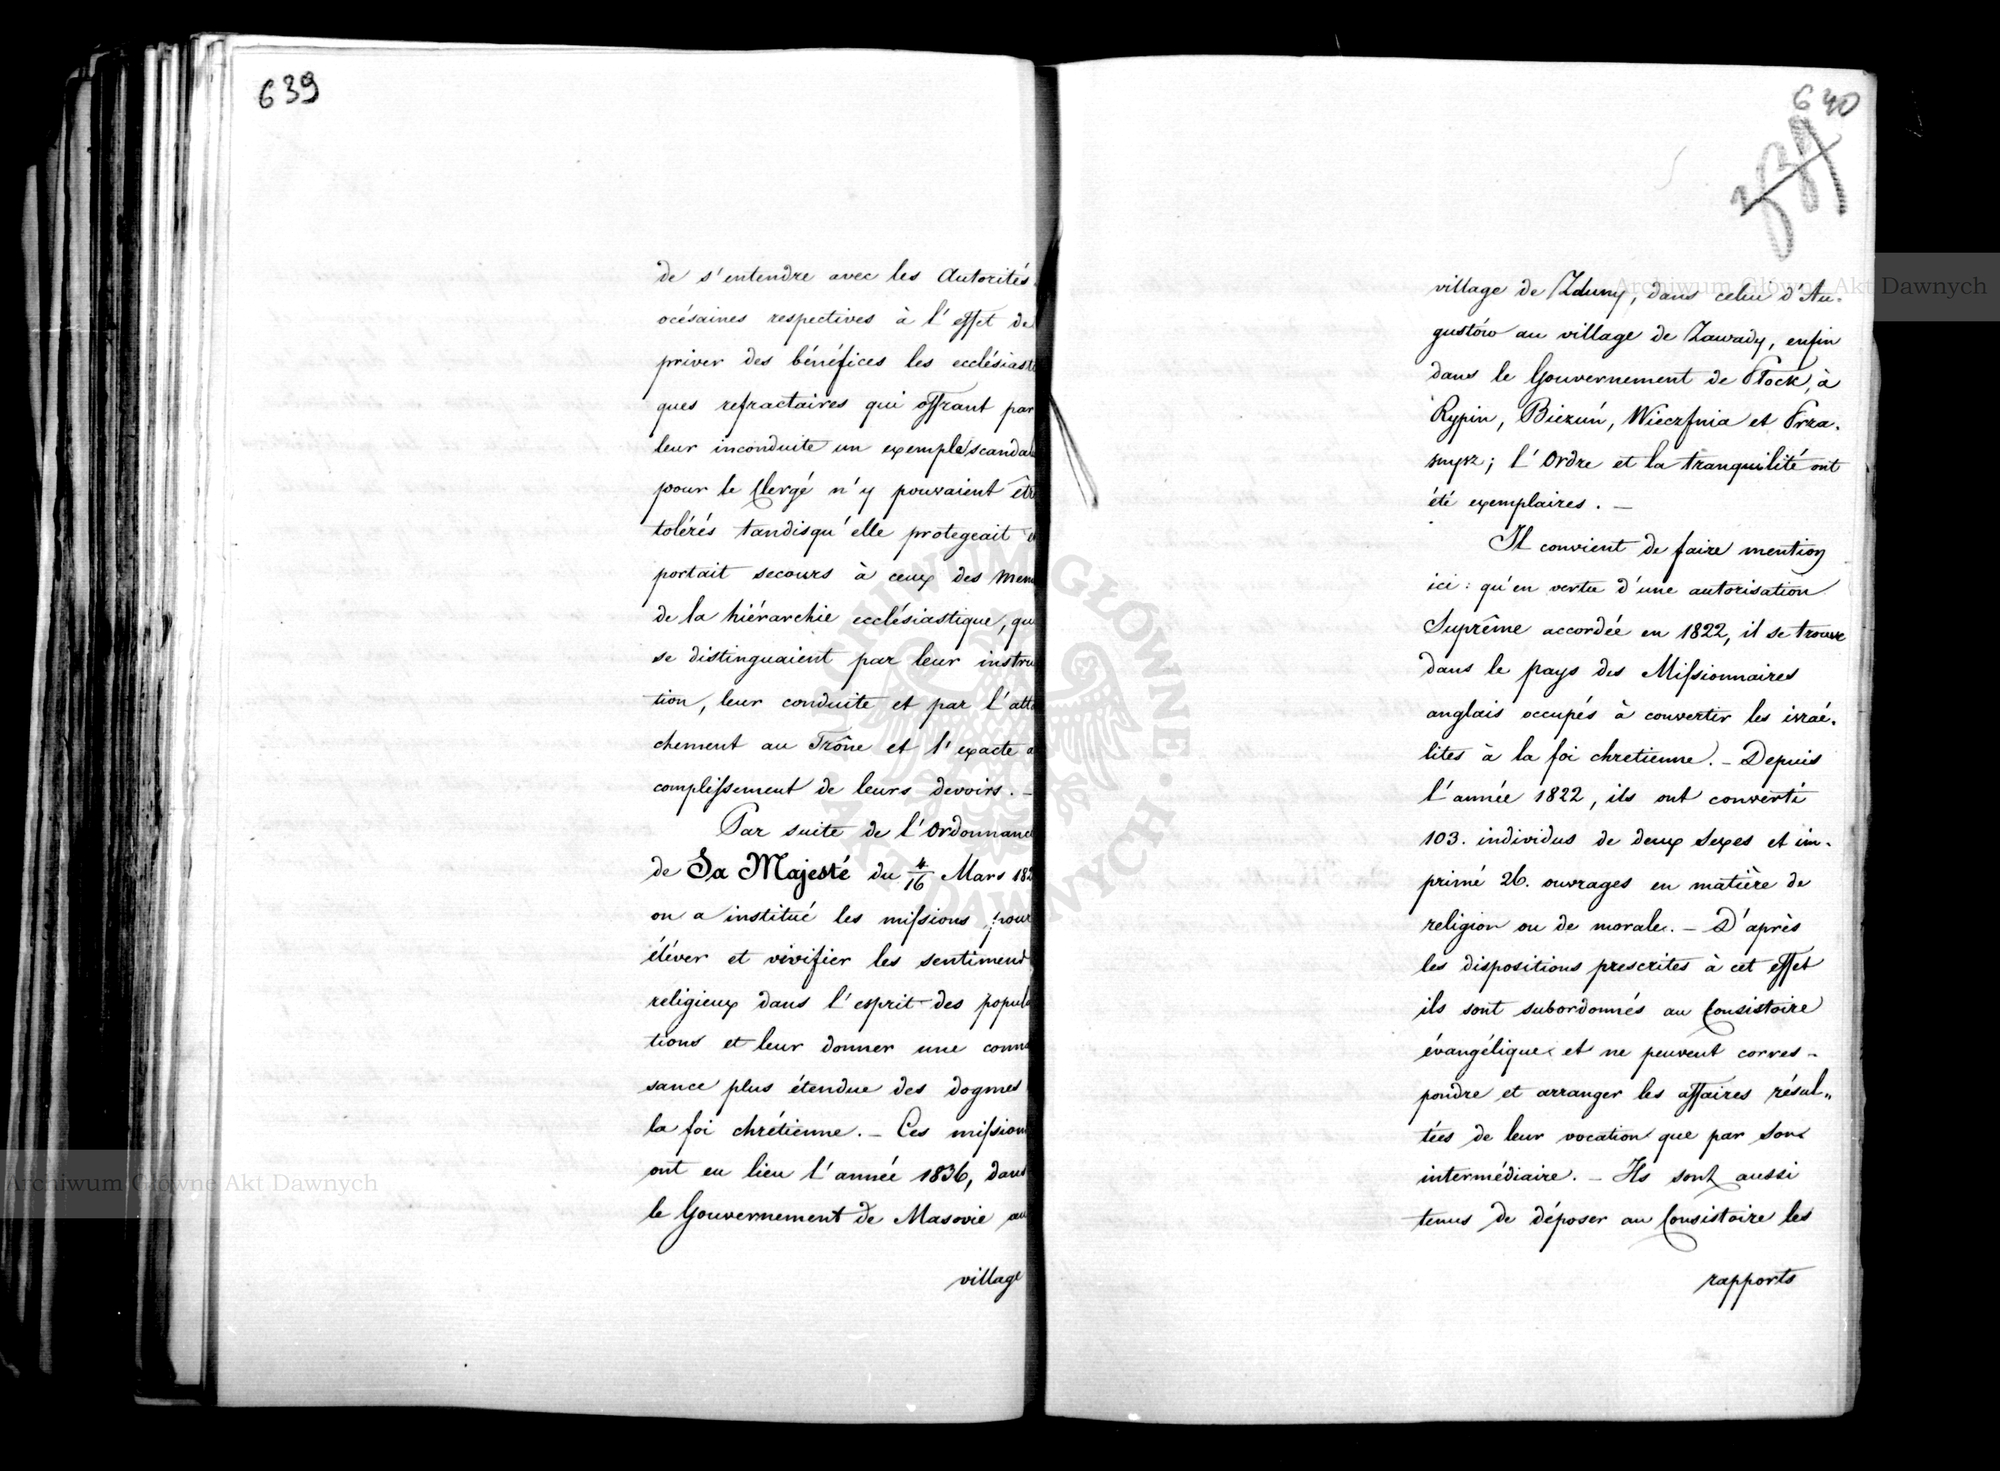 639
de s'entendre avec les Autorités
océsaines respectives à l'effet de
priver des bénéfices les ecclésiast
ques refractaires qui offrant par
leur inconduite un exemple scanda
pour le Clergé n'y pouvaient êtr
tolérés tandisqu'elle protegeait e
portait secours à ceux des mem
de la hiérarchie ecclésiastique, qu
se distinguaient par leur instru
tion, leur conduite et par l'atta
chement au Trône et l'exacte a
complissement de leurs devoirs. —
Par suite de l'Ordonnanc
de Sa Majesté du 4/16 Mars 18
on a institué les missions pour
éléver et vivifier les sentimens
religieux dans l'esprit des popula
tions et leur donner une conna
sance plus étendue des dogmes
la foi chrétienne. — Ces mission
ont eu lieu l'année 1836, dans
le Gouvernement de Masovie au
village
640
village de Zduny, dans celui d'Au-
gustów au village de Zawady, enfin
dans le Gouvernement de Płock, à
Rypin, Biezuń, Wieczfnia et Prza-
snysz; l'Ordre et la tranquilité ont
été exemplaires. —
Il convient de faire mention
ici: qu'en vertu d'une autorisation
Suprême accordée en 1822, il se trouve
dans le pays des Missionnaires
anglais occupés à convertir les israé-
lites à la foi chretienne. — Depuis
l'année 1822, ils ont converti
103. individus de deux sexes et im-
primé 26. ouvrages en matière de
religion ou de morale. — D'après
les dispositions prescrites à cet effet
ils sont subordonnés au Consistoire
évangélique et ne peuvent corres-
pondre et arranger les affaires résul-
tées de leur vocation que par son
intermédiaire. — Ils sont aussi
tenus de déposer au Consistoire les
rapports
Archiwum Główne Akt Dawnych
Archiwum Główne Akt Dawnych
ARCHIWUM GŁÓWNE AKT DAWNYCH